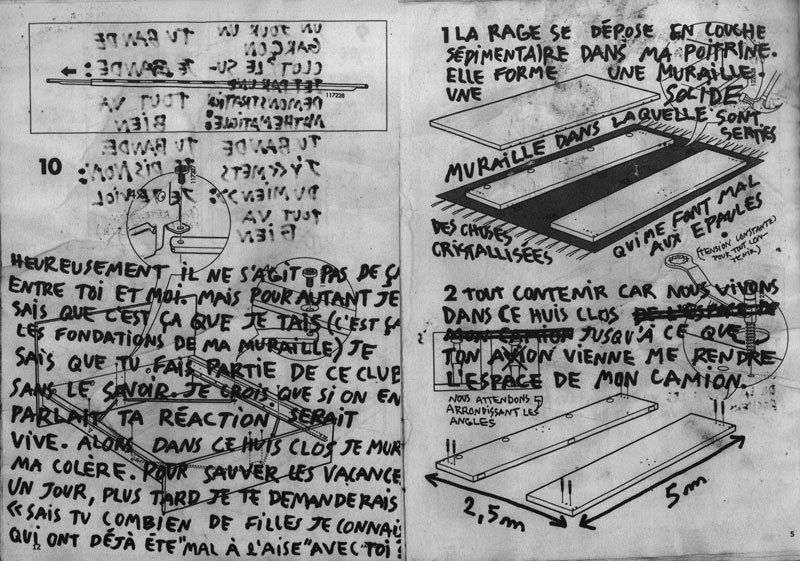 UN JOUR UN TU BANDE
GARÇON
CLOT LE SU- JE BANDE:
117228
JET PAR UNE
117228
DÉMONSTRATION TOUT VA
MATHÉMATIQUE: BIEN
10
TU BANDE TU BANDE
J'Y METS JE DIS NON:
DU MIEN» JE VIOL
TOUT VA
BIEN
HEUREUSEMENT IL NE S'AGIT PAS DE ÇA
ENTRE TOI ET MOI. MAIS POUR AUTANT JE
SAIS QUE C'EST ÇA QUE JE TAIS (C'EST ÇA
LES FONDATIONS DE MA MURAILLE) JE
SAIS QUE TU FAIS PARTIE DE CE CLUB
SANS LE SAVOIR. JE CROIS QUE SI ON EN
PARLAIT TA RÉACTION SERAIT
VIVE. ALORS DANS CE HUIS CLOS JE MUR
MA COLÈRE. POUR SAUVER LES VACANCE
UN JOUR, PLUS TARD JE TE DEMANDERAIS
«SAIS TU COMBIEN DE FILLES JE CONNAI
QUI ONT DÉJÀ ÉTÉ "MAL À L'AISE" AVEC TOI?
12
1 LA RAGE SE DÉPOSE EN COUCHE
SÉDIMENTAIRE DANS MA POITRINE.
ELLE FORME UNE MURAILLE.
UNE SOLIDE
MURAILLE DANS LAQUELLE SONT
SERTIES
DES CHOSES
CRISTALLISÉES
QUI ME FONT MAL
AUX EPAULES
(TENSION CONSTANTE)
POUR TOUT CON-
TENIR)
2 TOUT CONTENIR CAR NOUS VIVONS
DANS CE HUIS CLOS DE L'ESPACE DE
MON CAMION JUSQU'À CE QUE
TON AVION VIENNE ME RENDRE
L'ESPACE DE MON CAMION.
NOUS ATTENDONS EN
ARRONDISSANT LES
ANGLES
2,5m
5m
5